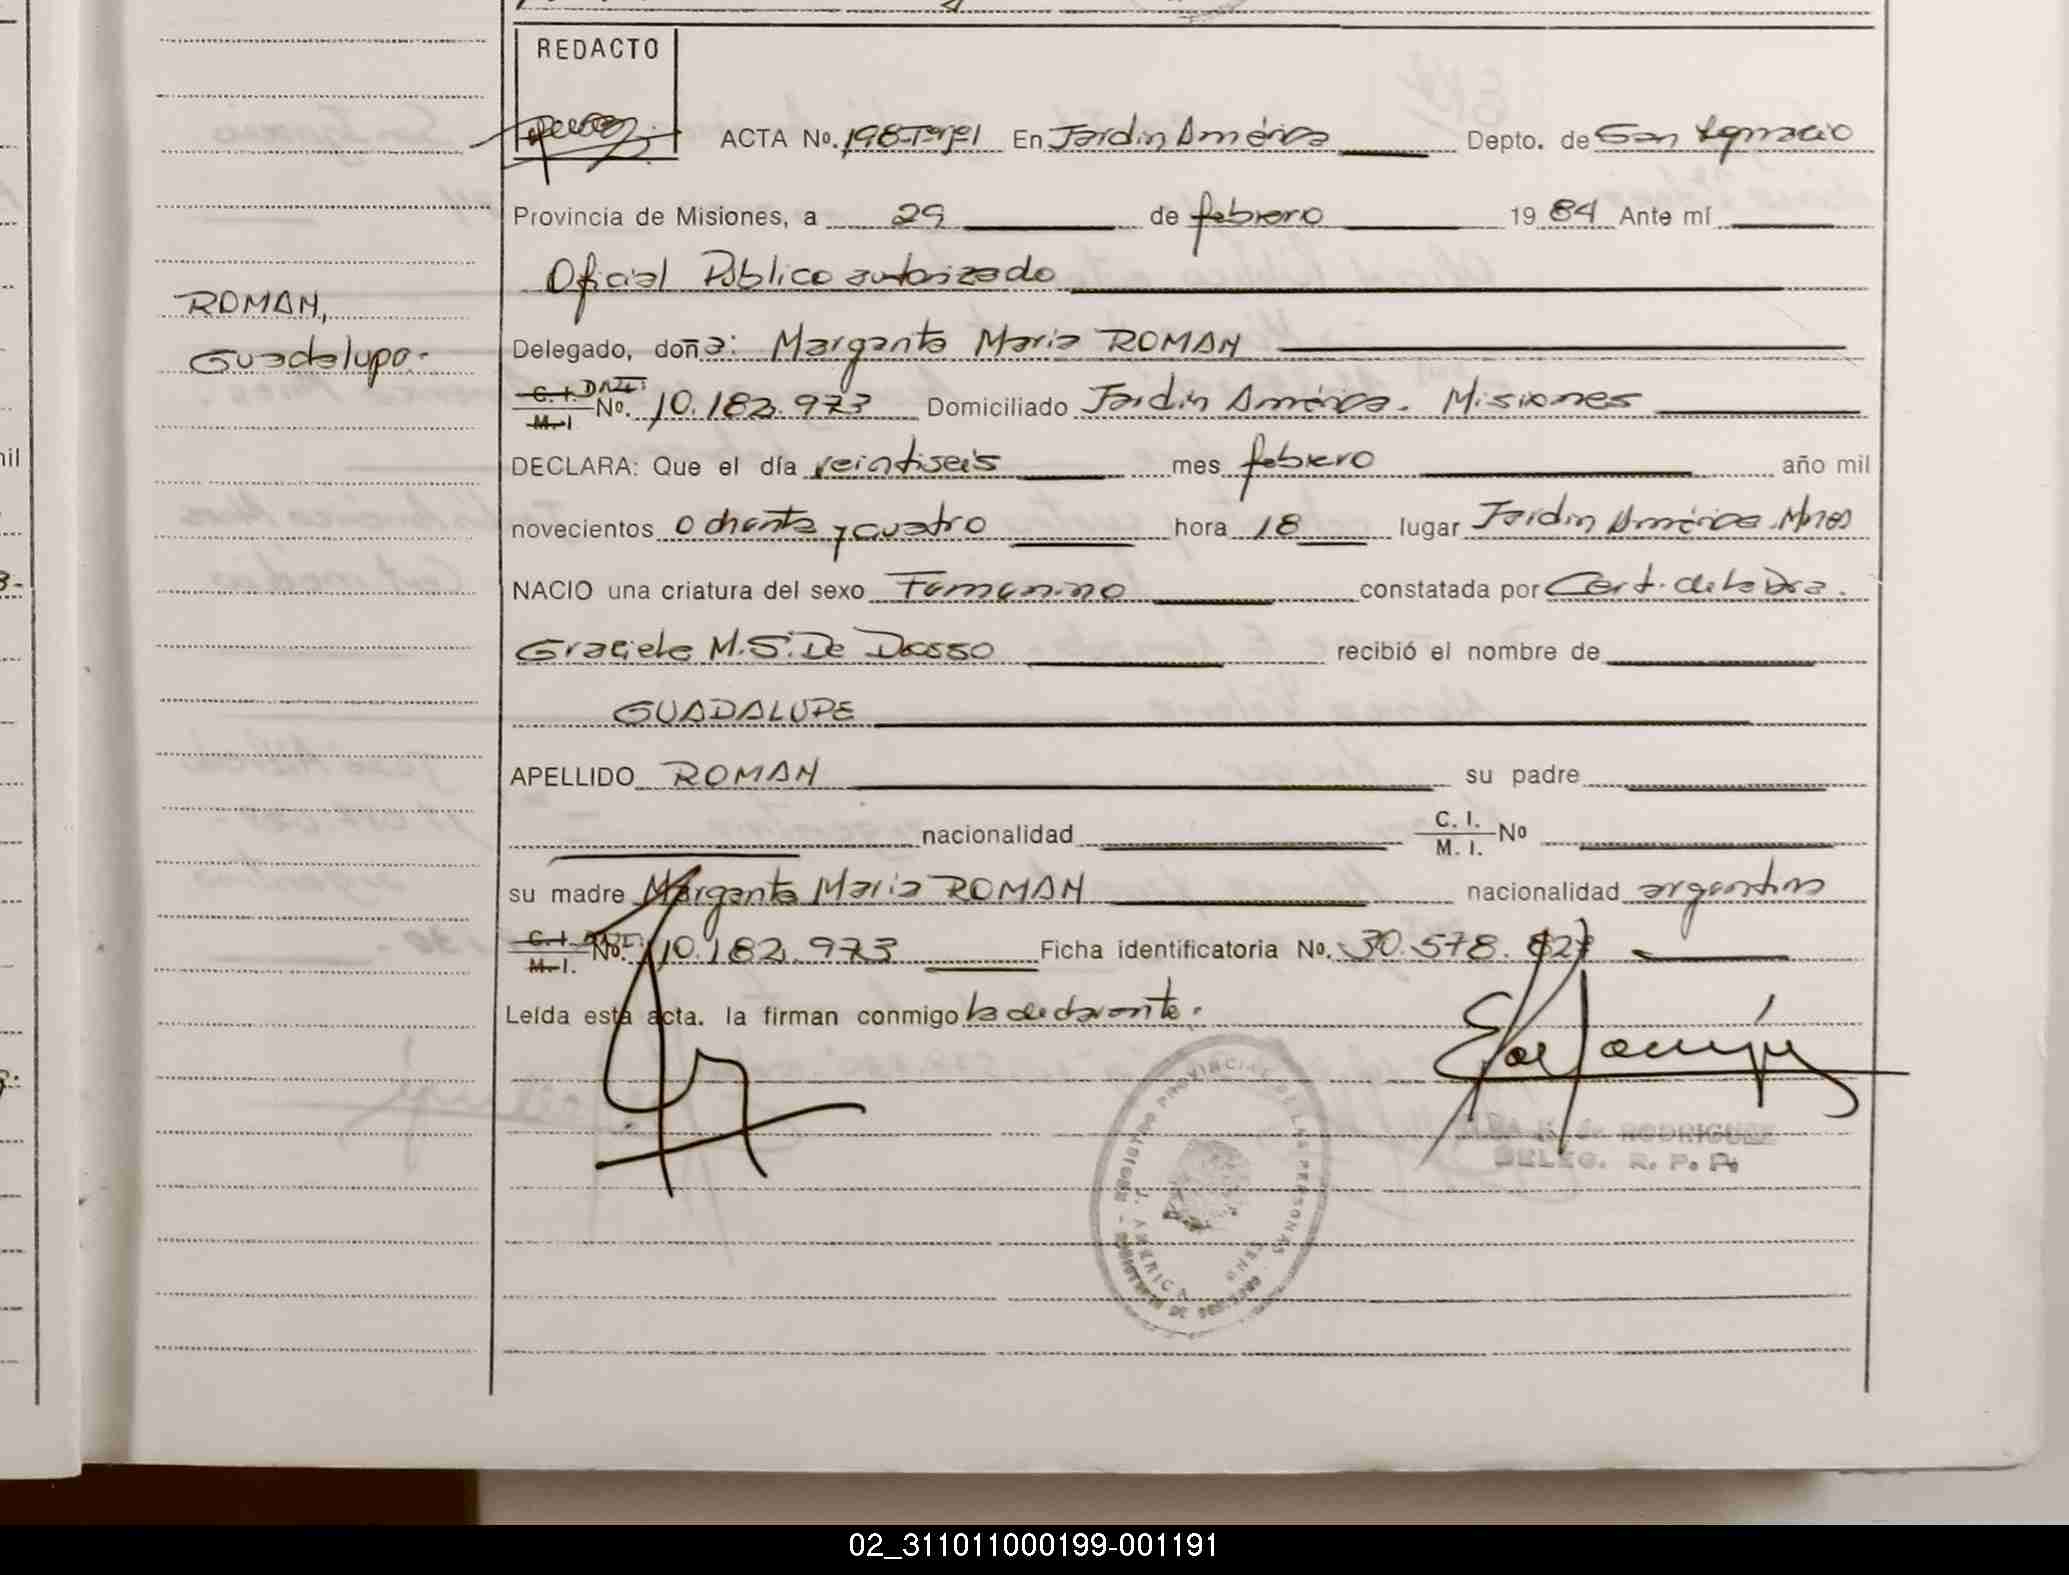 REDACTO
ACTA No. 198-Tº I En Jardin América Depto. de San Ignacio
Provincia de Misiones, a 29 de febrero 19 84 Ante mí
Oficial Público autorizado
ROMAN,
Guadalupe.-
Delegado, doña: Margarita Maria ROMAN
C. I. D.N.I:
M. I No. 10.182.973 Domiciliado Jardin América. Misiones
DECLARA: Que el día veintiseis mes febrero año mil
novecientos ochenta y cuatro hora 18 lugar Jardin América. Mnes
NACIO una criatura del sexo Femenino constatada por Cert. de la Dra.
Graciela M.S. De Dasso recibió el nombre de
GUADALUPE
APELLIDO ROMAN su padre
nacionalidad C. I. M. I. No
su madre Margarita Maria ROMAN nacionalidad argentina
C. I. D.N.I: M. I. No. 10.182.973 Ficha identificatoria No. 30.578.827
Leída esta acta. la firman conmigo la declarante.
REGISTRO PROVINCIAL DE LAS PERSONAS
J. AMERICA
MINISTERIO DE GOBIERNO
RODRIGUEZ
DELEG. R. P. P.
mil
02_311011000199-001191